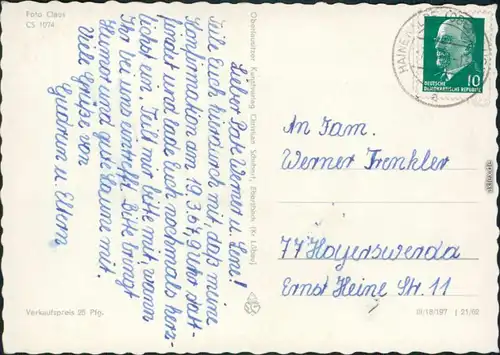 Foto Claus
CS 1074
Lieber Pate Werner u. Leni!
Teile Euch hierdurch mit, daß meine
Konfirmation am 19.3.67, 9 Uhr statt-
findet und lade Euch nochmals herz-
lichst ein. Teilt mir bitte mit, wann
Ihr bei uns eintrefft. Bitte bringt
Humor und gute Laune mit.
Viele Grüße von
u. Eltern
Verkaufspreis 25 Pfg.
Oberlausitzer Kunstverlag Christian Schubert, Ebersbach (Kr. Löbau)
10
DEUTSCHE
DEMOKRATISCHE REPUBLIK
An Fam.
Werner Trenkler
77 Hoyerswerda
Ernst Heine Str. 11
III/18/197 J 21/62